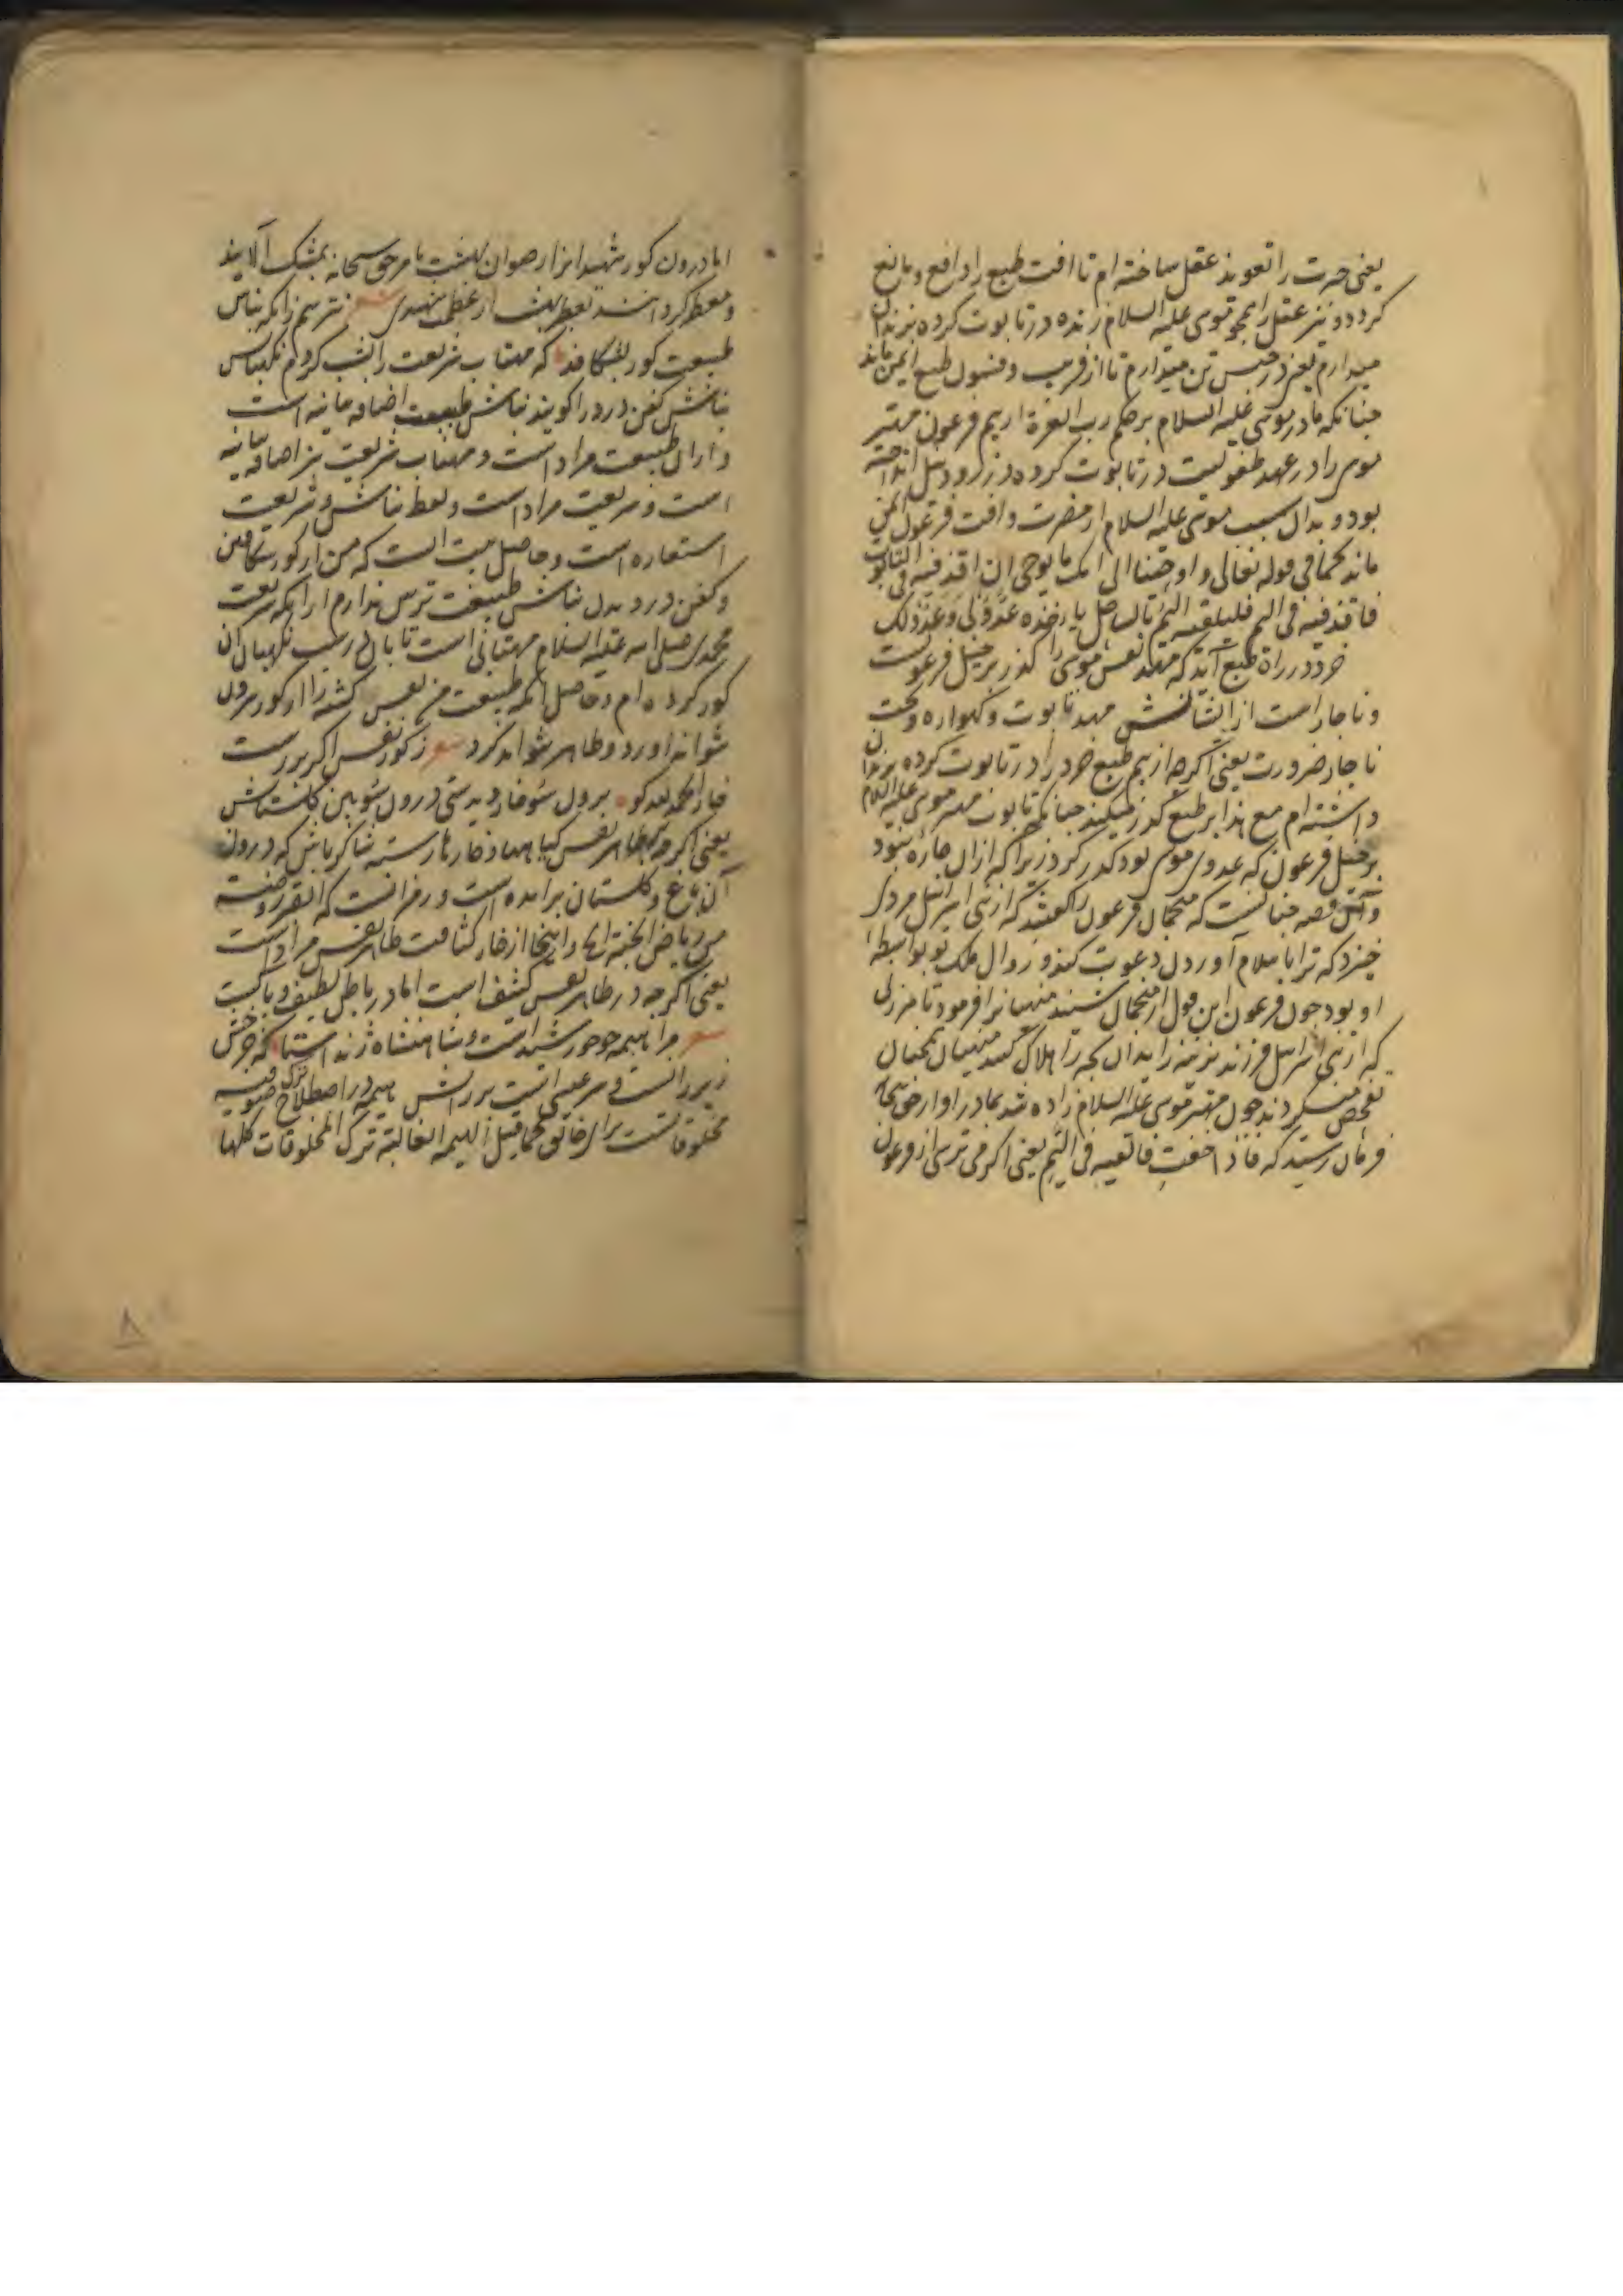 یعنی حیرت را تعویذ عقل ساخته ام تا افت طبع را دافع و مانع
کردد و نیز عقل را همچو موسی علیه السلام زنده در تابوت کرده بزندان
میدارم یعنی در حبس تن میدارم تا از فریب و فسول طبع ایمن ماند
جنانکه مادر موسی علیه السلام بر حکم رب العزة از بیم فرعون مهتر
موسی را در عهد طفولیت در تابوت کرده در رود نیل انداخته
بود و بدان سبب موسی علیه السلام از مضرت و افت فرعون ایمن
ماند کما فی قوله تعالی و اوحینا الی امک ما یوحی ان اقذفیه فی التابوت
فاقذفیه فی الیم فلیلقه الیم بالساحل یاخذه عدو لی و عدو لک
خرد در راه طبع آید که مهد نفس موسی را کذر بر خیل فرعونست
و ناجار است از ایشانش مهد تابوت و کهواره و بحت
ناجار ضرورت یعنی اکرجه از بیم طبع خرد را در تابوت کرده بزندان
داشته ام مع هذا بر طبع کذر میکند جنانکه تابوت مهتر موسی علیه السلام
بر خیل فرعون که عدوی موسی بود کذر کرد زیرا که ازان جاره نبود
و آن قصه جنانست که منجمان فرعون را کفتند که از بنی اسرائیل مردی
خیزد که ترا باسلام آوردن دعوت کند و زوال ملک تو بواسطه
او بود جون فرعون این قول از منجمان شنید منهیانرا فرمود تا هر زنی
که از بنی اسرائیل فرزند نرینه زاید آن بجه را هلاک کنند منهیان همجنان
تفحص میکردند جون مهتر موسی علیه السلام زاده شد بمادر او از حق سبحانه
فرمان رسید که فاذا خفت فالقیه فی الیم یعنی اکر می ترسی از فرعون
اما درون کور شهید انرا رضوان بهشت بامر حق سبحانه بمشک آلایند
و معطر کردانند بعطر بهشت از عظمت شهیدی شعر نترسم زانکه نباش
طبیعت کور بشکافد که مهتاب شریعت را بشب کردم نکهبانش
نباش کفن دزد را کویند نباش طبیعت اضافه بیانیه است
و ازان طبیعت مراد است و مهتاب شریعت نیز اضافه بیانیه
است و شریعت مراد است و لفظ نباش و شریعت
استعاره است و حاصل بیت انست که من از کور شکافتن
و کفن دزدیدن نباش طبیعت ترس ندارم ازانکه شریعت
محمدی صلی الله علیه السلام مهتابی است تابان در شب نکهبان آن
کور کرده ام و حاصل آنکه طبیعت من نفس کشته را از کور بیرون
نتواند اورد و ظاهر نتواند کرد شعر ز کور نفس اکر بر رست
خار الحمد لله کو برون سو خار دیدستی درون سو بین کلستانش
یعنی اکرجه بظاهر نفس کیاهها و خارها رسته شاکر باش که درون
آن باغ و کلستان برامده است و رمز انست که القبر روضة
من ریاض الجنة الخ و اینجا از خار کثافت ظاهر نفس مراد است
یعنی اکرجه در ظاهر نفس کثیف است اما در باطن لطیف و پاکست
شعر مرا همه جو خورشیدست و شاهنشاه زند استا که جرخش
زیر رانست و سر عیسی است بر رانش همه در اصطلاح صوفیه ترک
مخلوقاتست برای خالق کما قیل الهیمه الغالبة ترک المخلوقات کلها
۸